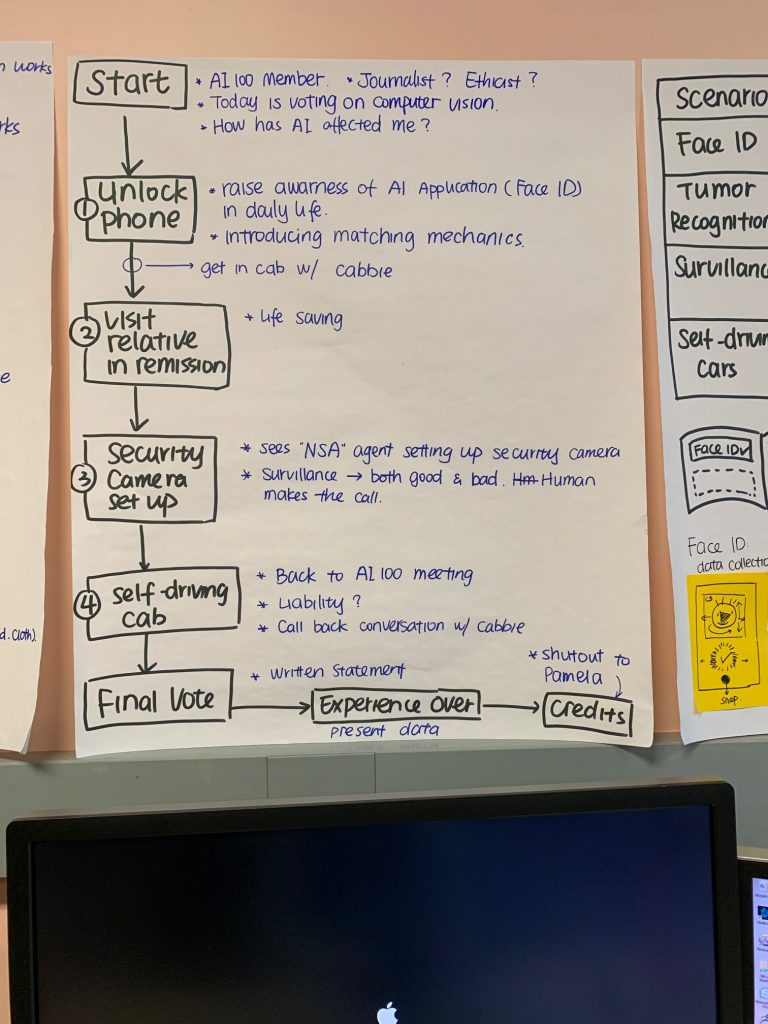 works
rks
e
d.cloth).
Start
* AI 100 Member. * Journalist? Ethicist?
* Today is voting on computer vision.
* How has AI affected me?
① Unlock
phone
* raise awarness of AI Application (Face ID)
in daily life.
* Introducing matching mechanics.
get in cab w/ cabbie
② Visit
relative
in remission
* life saving
③ Security
Camera
set up
* sees "NSA" agent setting up security camera
* Survillance → both good & bad. Hm Human
makes the call.
④ self-driving
cab
* Back to AI 100 meeting
* Liability?
* Call back conversation w/ cabbie
Final Vote
* written statement
Experience Over
present data
* shutout to
Pamela
Credits
Scenario
Face ID
Tumor
Recognition
Survillanc
Self-drivin
Cars
Face ID
Face ID:
data collectio
snap.